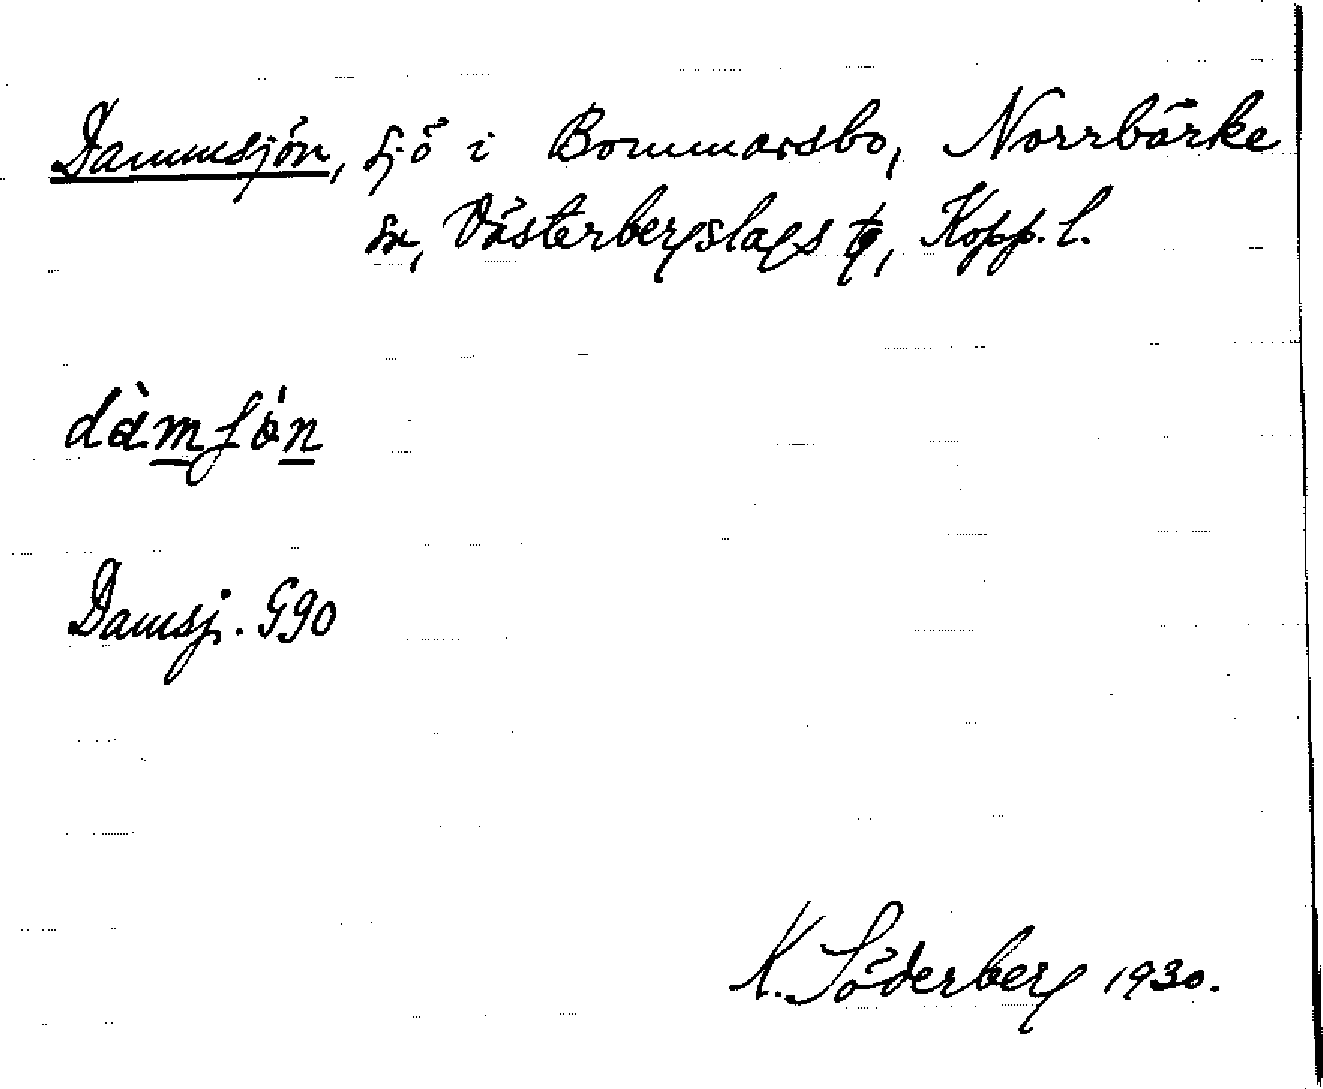 Dammsjön, sjö i Bommarsbo, Norrbärke
sn, Västerbergslags tg, Kopp. l.
dàmʃö́n
Damsj. G90
K. Söderberg 1930.